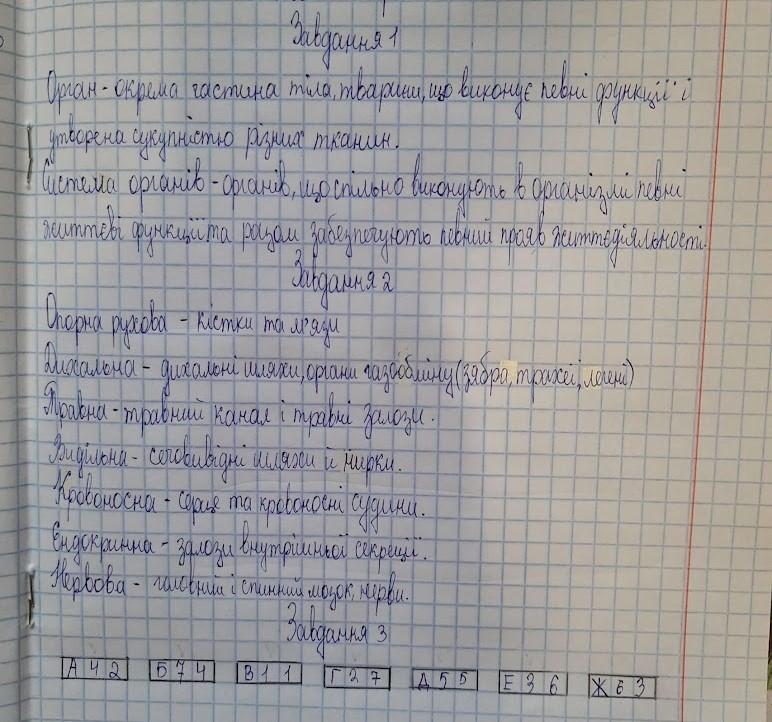 Завдання 1
Орган - окрема частина тіла, тварини, що виконує певні функції і
утворена сукупністю різних тканин.
Система органів - органів, що спільно виконують в організмі певні
життєві функції та разом забезпечують певний прояв життєдіяльності.
Завдання 2
Опорна рухова - кістки та м'язи
Дихальна - дихальні шляхи, органи газообміну (зябра, трахеї, легені)
Травна - травний канал і травні залози.
Видільна - сечовивідні шляхи й нирки.
Кровоносна - серце та кровоносні судини.
Ендокринна - залози внутрішньої секреції.
Нервова - головний і спинний мозок, нерви.
Завдання 3
А 4 2 Б 7 4 В 1 1 Г 2 7 Д 5 5 Е 3 6 Ж 6 3